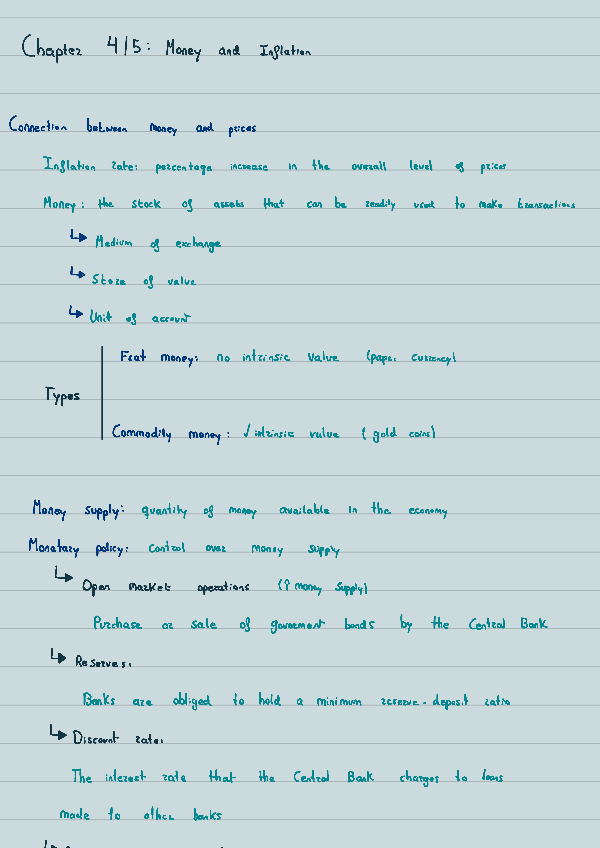 Chapter 4/5: Money and Inflation
Connection between money and prices
Inflation rate: percentage increase in the overall level of prices
Money: the stock of assets that can be readily used to make transactions
↳ Medium of exchange
↳ Store of value
↳ Unit of account
Types
Fiat money: no intrinsic value (paper currency)
Commodity money: √ intrinsic value (gold coins)
Money supply: quantity of money available in the economy
Monetary policy: control over money supply
↳ Open market operations (↑ money supply)
Purchase or sale of government bonds by the Central Bank
↳ Reserves:
Banks are obliged to hold a minimum reserve-deposit ratio
↳ Discount rate:
The interest rate that the Central Bank charges to loans
made to other banks